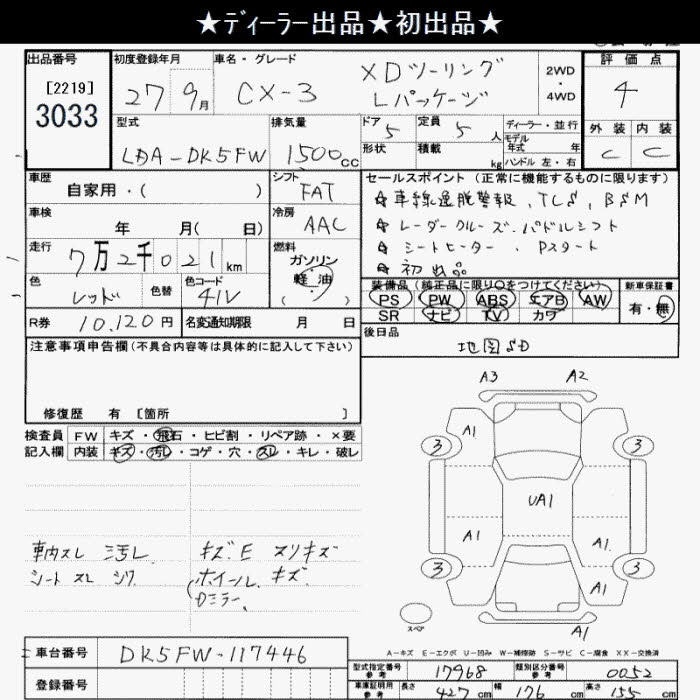 ★ディーラー出品★初出品★
出品番号 初度登録年月 車名・グレード 評価点
[2219]
3033
27 9月 CX-3 XDツーリング
Lパッケージ
2WD
・
4WD
4
型式 排気量 ドア 定員 ディーラー・並行 外装 内装
LDA-DK5FW 1500cc 5 5人 モデル年式 年
形状 積載 kg ハンドル 左・右 C C
車歴 シフト セールスポイント (正常に機能するものに限ります)
自家用・( ) FAT ☆車線逸脱警報、TCS、BSM
車検 冷房 ☆レーダークルーズ、パドルシフト
年 月( 日) AAC ☆シートヒーター、Pスタート
走行 燃料 ☆初出品
7万2千021km ガソリン
軽油
( )
色 色替 色コード 装備品 (純正品に限り○をつけてください) 新車保証書
レッド 41V PS PW ABS エアB AW 有・無
SR ナビ TV カワ
R券 10,120円 名変通知期限 月 日 後日品
地図SD
注意事項申告欄(不具合内容等は具体的に記入して下さい)
修復歴 有 [箇所 ]
検査員 FW キズ・飛石・ヒビ割・リペア跡・×要
記入欄 内装 キズ・汚レ・コゲ・穴・スレ・キレ・破レ
A3 A2
A1
3 3
UA1
A1 A1
3 3
A1
スペア A1
車内スレ 汚レ キズE スリキズ
シート スレ シワ ホイール キズ
ドミラー
A-キズ E-エクボ U-凹み W-補修跡 S-サビ C-腐食 XX-交換済
車台番号 DK5FW-117446
登録番号
型式指定番号 参考 17968 類別区分番号 参考 0052
車庫証明用 参考 長さ 427cm 幅 176cm 高さ 155cm